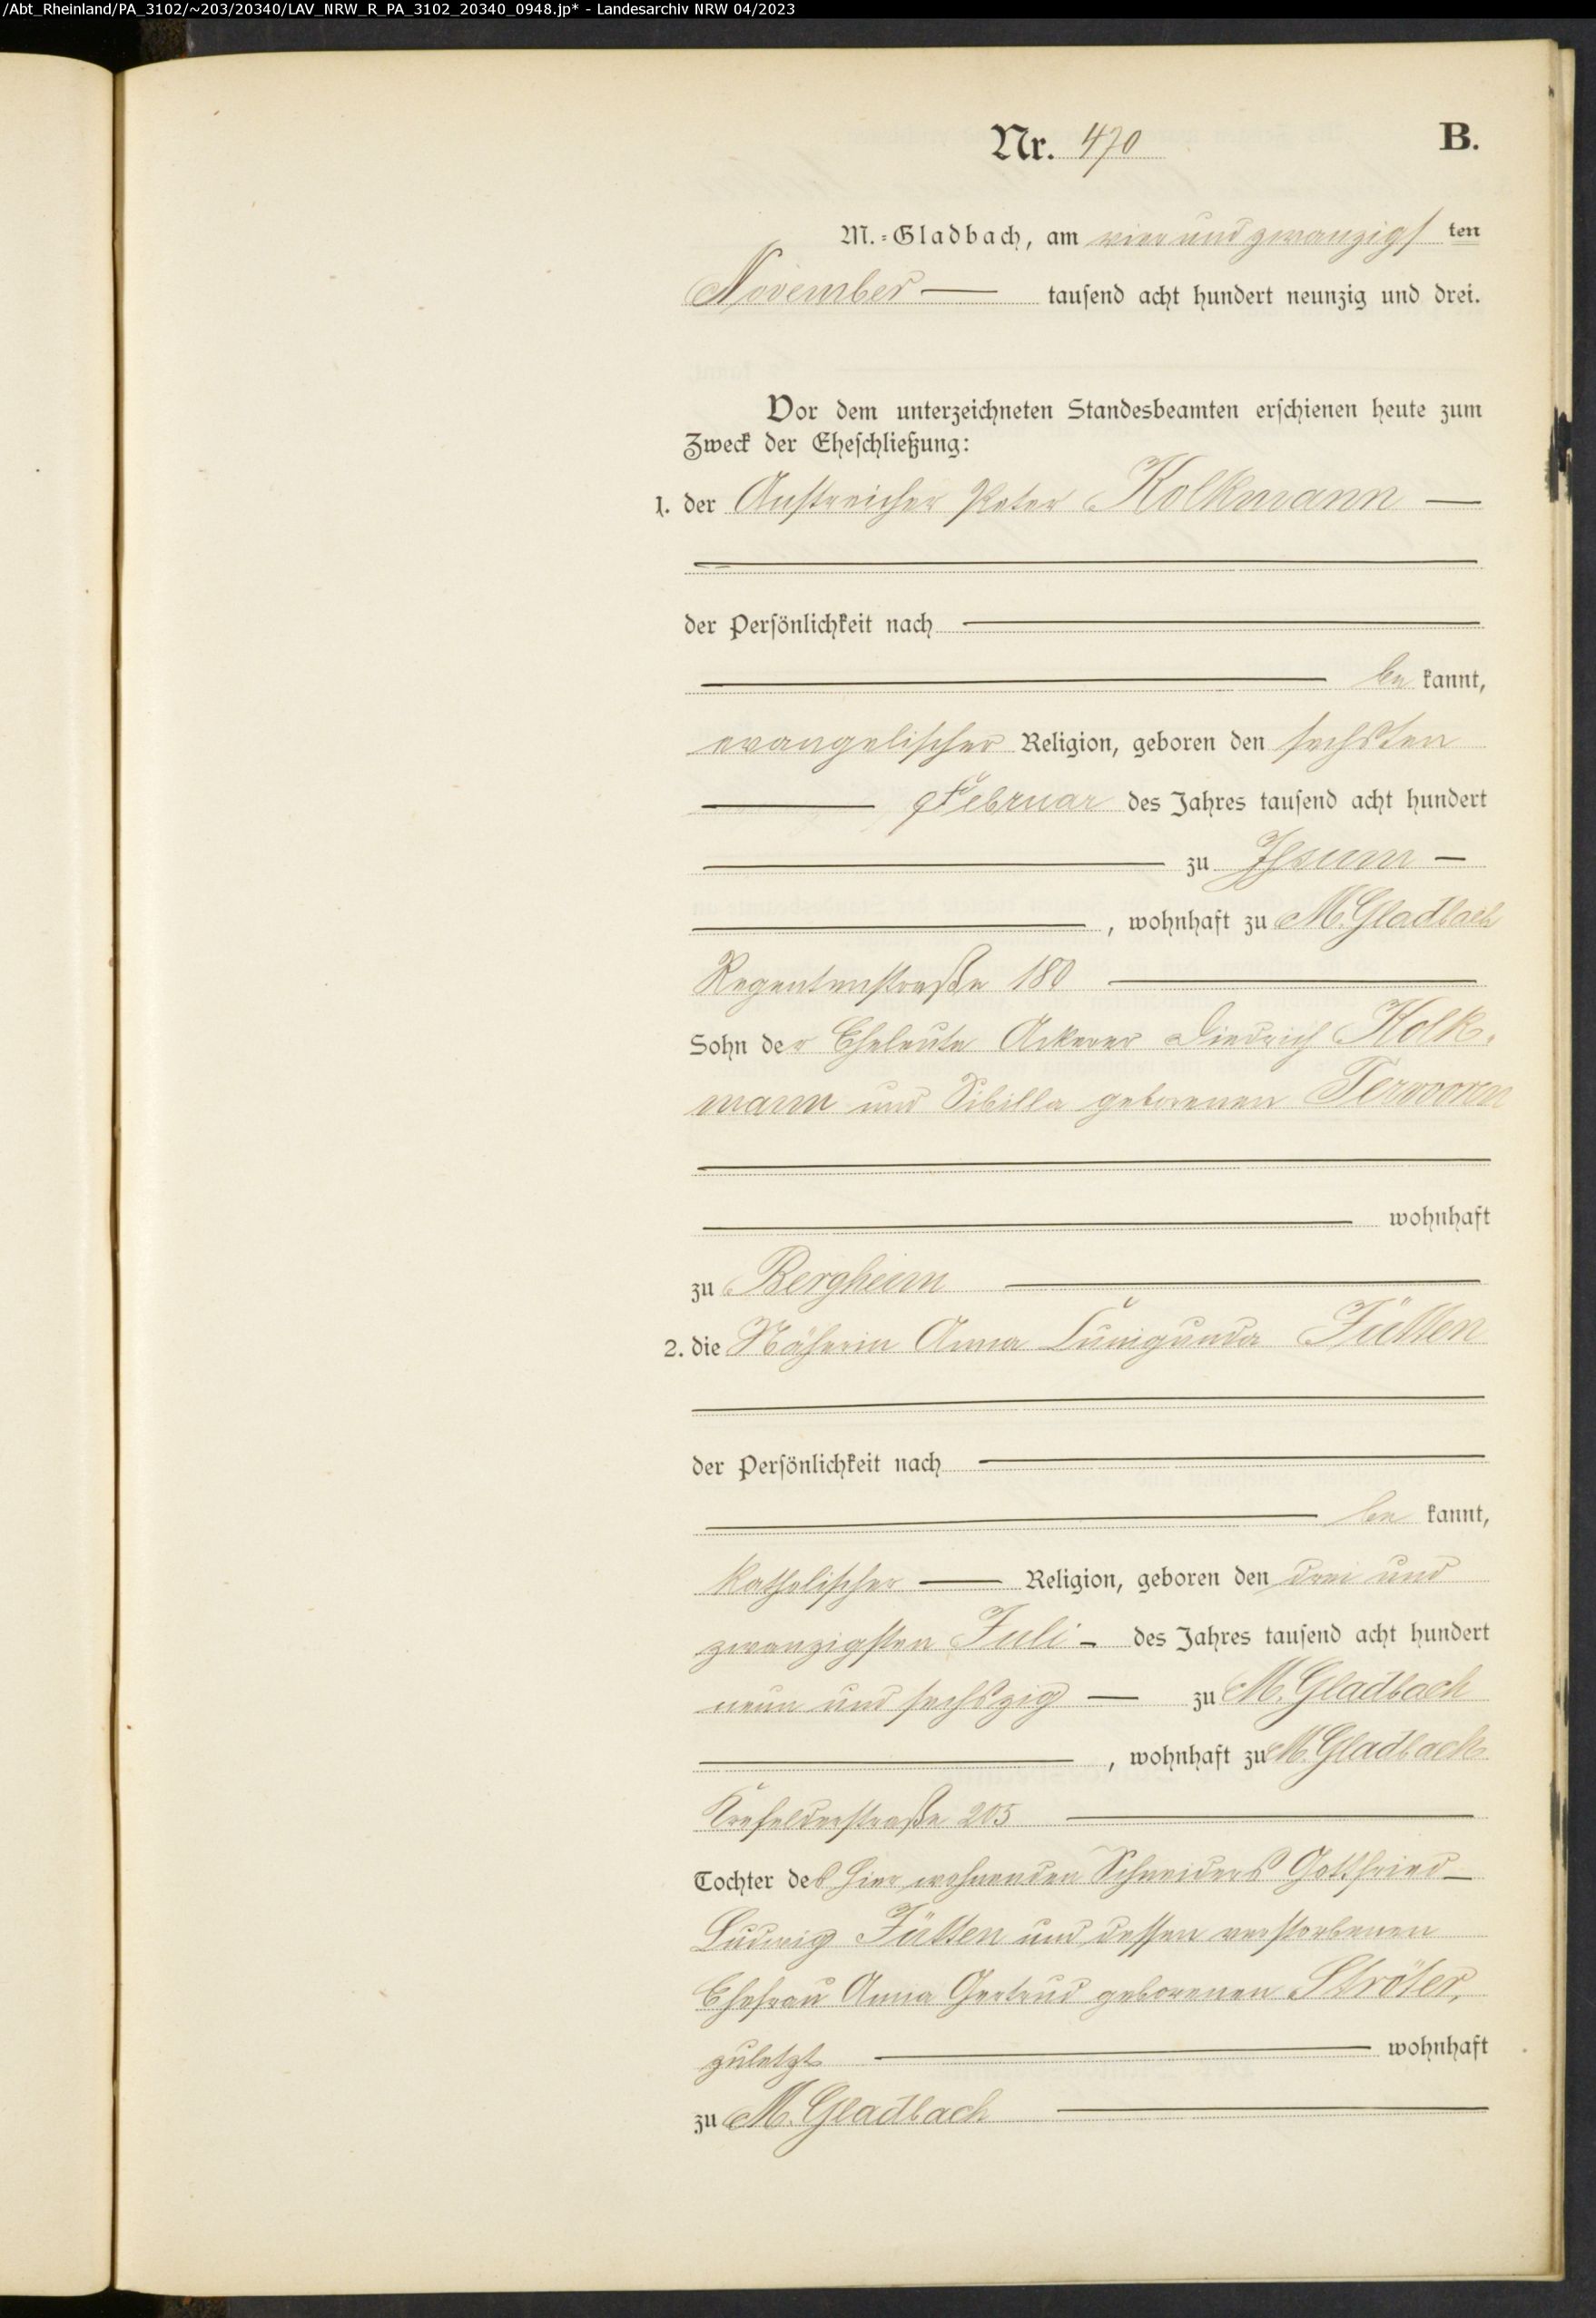 /Abt_Rheinland/PA_3102/~203/20340/LAV_NRW_R_PA_3102_20340_0948.jp* - Landesarchiv NRW 04/2023
Nr. 470 B.
M.-Gladbach, am vier und zwanzigs ten
November tausend acht hundert neunzig und drei.
Vor dem unterzeichneten Standesbeamten erschienen heute zum
Zweck der Eheschließung:
1. der Anstreicher Peter Kolkmann
der Persönlichkeit nach
be kannt,
evangelischer Religion, geboren den sechsten
Februar des Jahres tausend acht hundert
zu
, wohnhaft zu M. Gladbach
Regentenstraße 180
Sohn der Eheleute Ackerer Diedrich Kolk-
mann und Sibilla geborenen Terwooren
wohnhaft
zu Bergheim
2. die Näherin Anna Cunigunda Jütten
der Persönlichkeit nach
be kannt,
katholischer Religion, geboren den drei und
zwanzigsten Juli des Jahres tausend acht hundert
neun und sechszig zu M. Gladbach
, wohnhaft zu M. Gladbach
Krefelderstraße 205
Tochter des hier wohnenden Schneiders Gottfried
Ludwig Jütten und dessen verstorbenen
Ehefrau Anna Gertrud geborenen Ströter,
zuletzt wohnhaft
zu M. Gladbach